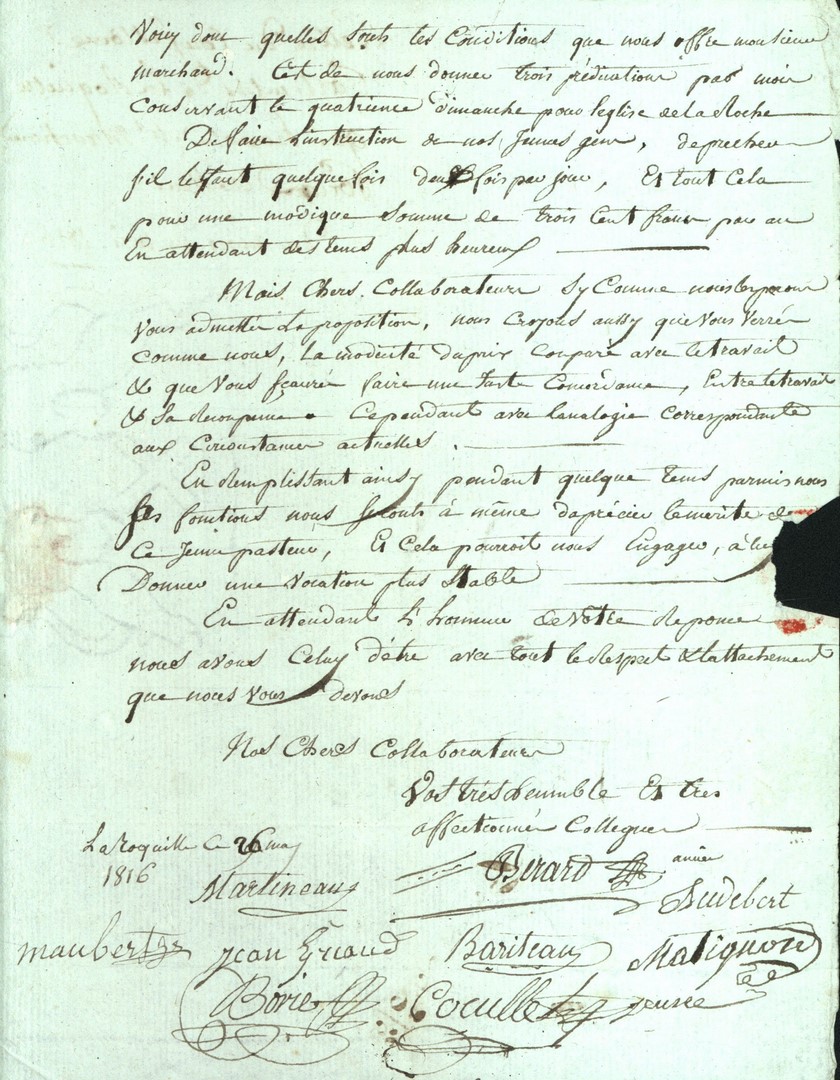 Voicy donc quelles sonts les Conditions que nous offre monsieur
marchand. C'est de nous donner trois prédications par mois
Conservant le quatrieme dimanche pour leglise de La Roche
De faire L'instruction de nos Jeunes gens, de precher
s'il le faut quelque fois deux fois par jour, Et tout Cela
pour une modique somme de trois Cent francs par an
En attendant des tems plus heureux
Mais Chers Collaborateurs sy Comme nous lesperons
Vous admettés La proposition, nous Croyons aussy que Vous Verrés
Comme nous, La modicité du prix Comparé avec le travail
& que Vous sçaurés faire une Juste Concordance, Entre le travail
& sa Recompense. Cependant avec lanalogie correspondante
aux Circonstances actuelles.
En Remplissant ainsy pendant quelque tems parmis nous
ses fonctions nous serons à même daprécier le merite de
Ce Jeune pasteur, Et Cela pourroit nous Engager, à lui
Donner une vocation plus Stable
En attendant L'honneur de Votre Reponce
nous avons Celuy d'être avec tout le Respect & lattachement
que nous vous devons
Nos Chers Collaborateurs
Vos très humble Et tres
affectionnés Collegues
La Roquille Ce 26 may
1816
Martineau
Berard
ainée
Audebert
Maubert
Jean Griaud
Bariteau
Matignon
Borie
Coculle
jeune